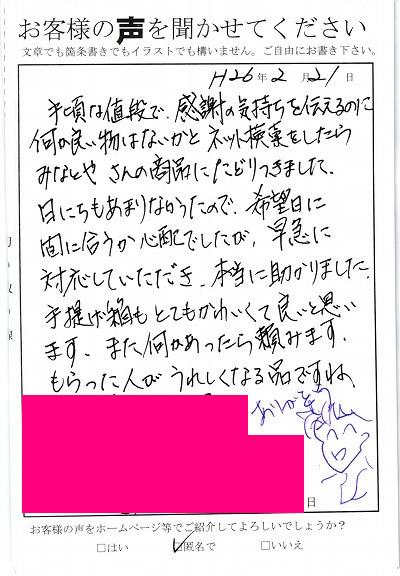 お客様の声を聞かせてください
文章でも箇条書きでもイラストでも構いません。ご自由にお書き下さい。
H26年2月21日
手頃な値段で、感謝の気持ちを伝えるのに
何か良い物はないかとネット検索をしたら
みなとやさんの商品にたどりつきました。
日にちもあまりなかったので、希望日に
間に合うか心配でしたが、早急に
対応していただき、本当に助かりました。
手提げ箱もとてもかわいくて良いと思い
ます、また何かあったら頼みます。
もらった人がうれしくなる品ですね。
ありがとう
日
お客様の声をホームページ等でご紹介してよろしいでしょうか？
□はい □匿名で □いいえ